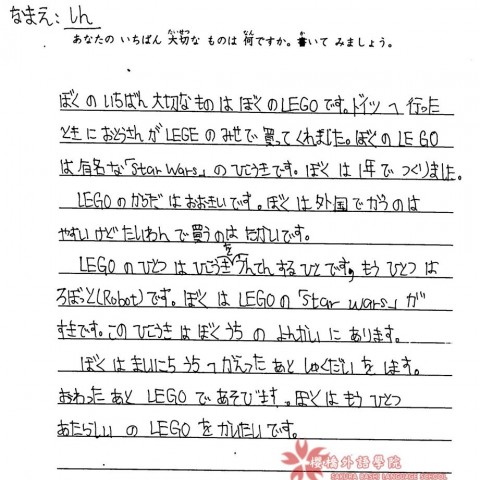 なまえ：しん
あなたの いちばん 大切な ものは 何ですか。書いて みましょう。
ぼくのいちばん大切なものはぼくのLEGOです。ドイツへ行った
ときにおとうさんがLEGEのみせで買ってくれました。ぼくのLEGO
は有名な「Star Wars」のひこうきです。ぼくは1年でつくりました。
LEGOのからだはおおきいです。ぼくは外国でかうのは
やすいけどたいわんで買うのはたかいです。
LEGOのひとつはひこうきをうんてんするひとです。もうひとつは
ろぼっと(Robot)です。ぼくはLEGOの「Star Wars」が
すきです。このひこうきはぼくうちのよんかいにあります。
ぼくはまいにちうちへかえったあとしゅくだいをします。
おわったあとLEGOであそびます。ぼくはもうひとつ
あたらしいのLEGOをかいたいです。
櫻橋外語學院
SAKURA BASHI LANGUAGE SCHOOL